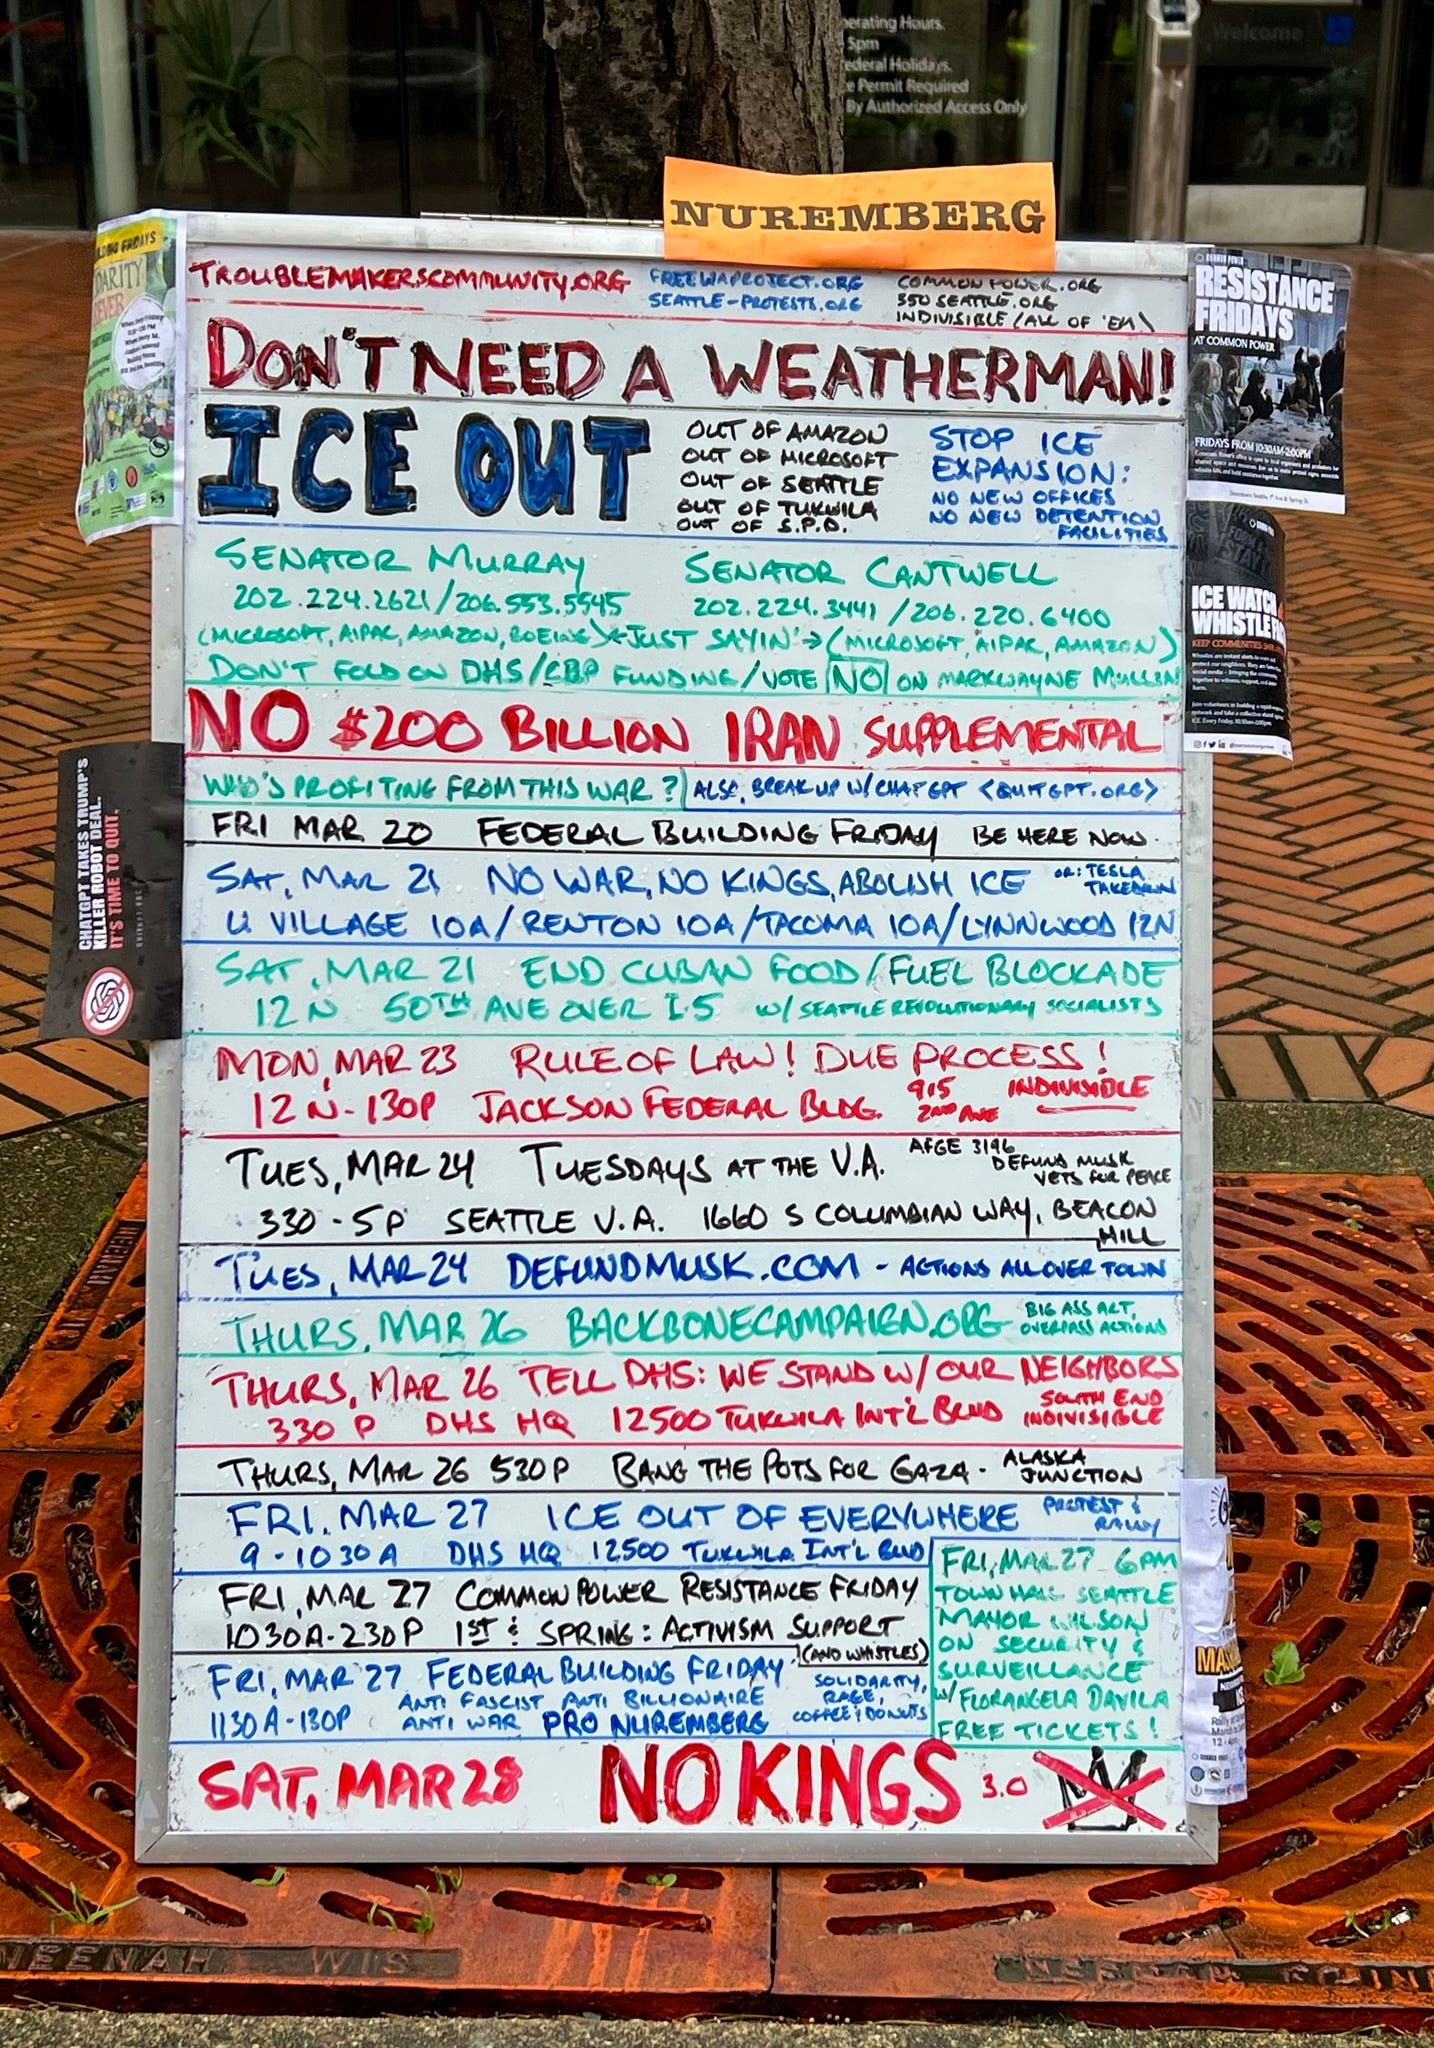 erating Hours.
5pm
ederal Holidays.
e Permit Required
By Authorized Access Only
Welcome
NUREMBERG
TROUBLEMAKERSCOMMUNITY.ORG
FREEWAPROJECT.ORG
SEATTLE-PROTESTS.ORG
COMMON POWER.ORG
350 SEATTLE.ORG
INDIVISIBLE (ALL OF 'EM)
DON'T NEED A WEATHERMAN!
ICE OUT
OUT OF AMAZON
OUT OF MICROSOFT
OUT OF SEATTLE
OUT OF TUKWILA
OUT OF S.P.D.
STOP ICE
EXPANSION:
NO NEW OFFICES
NO NEW DETENTION
FACILITIES
SENATOR MURRAY
202.224.2621/206.553.5545
SENATOR CANTWELL
202.224.3441/206.220.6400
(MICROSOFT, AIPAC, AMAZON, BOEING) ← JUST SAYIN' → (MICROSOFT, AIPAC, AMAZON)
DON'T FOLD ON DHS/CBP FUNDING/VOTE NO ON MARKWAYNE MULLIN
NO $200 BILLION IRAN SUPPLEMENTAL
WHO'S PROFITING FROM THIS WAR?
ALSO, BREAK UP W/CHATGPT <QUITGPT.ORG>
FRI MAR 20 FEDERAL BUILDING FRIDAY BE HERE NOW.
SAT, MAR 21 NO WAR, NO KINGS, ABOLISH ICE OR: TESLA
TAKEDOWN
U VILLAGE 10A/RENTON 10A/TACOMA 10A/LYNNWOOD 12N
SAT, MAR 21 END CUBAN FOOD/FUEL BLOCKADE
12 N 50TH AVE OVER I-5 W/ SEATTLE REVOLUTIONARY SOCIALISTS
MON, MAR 23 RULE OF LAW! DUE PROCESS!
12 N-130P JACKSON FEDERAL BLDG. 915
2ND AVE
INDIVISIBLE
TUES, MAR 24 TUESDAYS AT THE V.A. AFGE 3196
DEFUND MUSK
VETS FOR PEACE
330-5P SEATTLE V.A. 1660 S COLUMBIAN WAY, BEACON
HILL
TUES, MAR 24 DEFUNDMUSK.COM - ACTIONS ALL OVER TOWN
THURS, MAR 26 BACKBONECAMPAIGN.ORG - BIG ASS ART,
OVERPASS ACTIONS
THURS, MAR 26 TELL DHS: WE STAND W/ OUR NEIGHBORS
330 P DHS HQ 12500 TUKWILA INT'L BLVD SOUTH END
INDIVISIBLE
THURS, MAR 26 530P BANG THE POTS FOR GAZA - ALASKA
JUNCTION
FRI, MAR 27 ICE OUT OF EVERYWHERE PROTEST &
RALLY
9-1030A DHS HQ 12500 TUKWILA INT'L BLVD
FRI, MAR 27 COMMON POWER RESISTANCE FRIDAY
1030A-230P 1ST & SPRING: ACTIVISM SUPPORT
(AND WHISTLES)
FRI, MAR 27 FEDERAL BUILDING FRIDAY
1130A-130P ANTI FASCIST ANTI BILLIONAIRE
ANTI WAR PRO NUREMBERG
SOLIDARITY,
RAGE,
COFFEE & DONUTS
FRI, MAR 27 6PM
TOWN HALL SEATTLE
MAYOR WILSON
ON SECURITY &
SURVEILLANCE
W/FLORANGELA DAVILA
FREE TICKETS!
SAT, MAR 28 NO KINGS 3.0
LDING FRIDAYS
DARITY
EVER
CHATGPT TAKES TRUMP'S
KILLER ROBOT DEAL.
IT'S TIME TO QUIT.
RESISTANCE
FRIDAYS
AT COMMON POWER
FRIDAYS FROM 10:30AM-2:00PM
ICE WATCH
WHISTLE PA
KEEP COMMUNITIES
MAS
12 - 4pm
NEENAH WIS